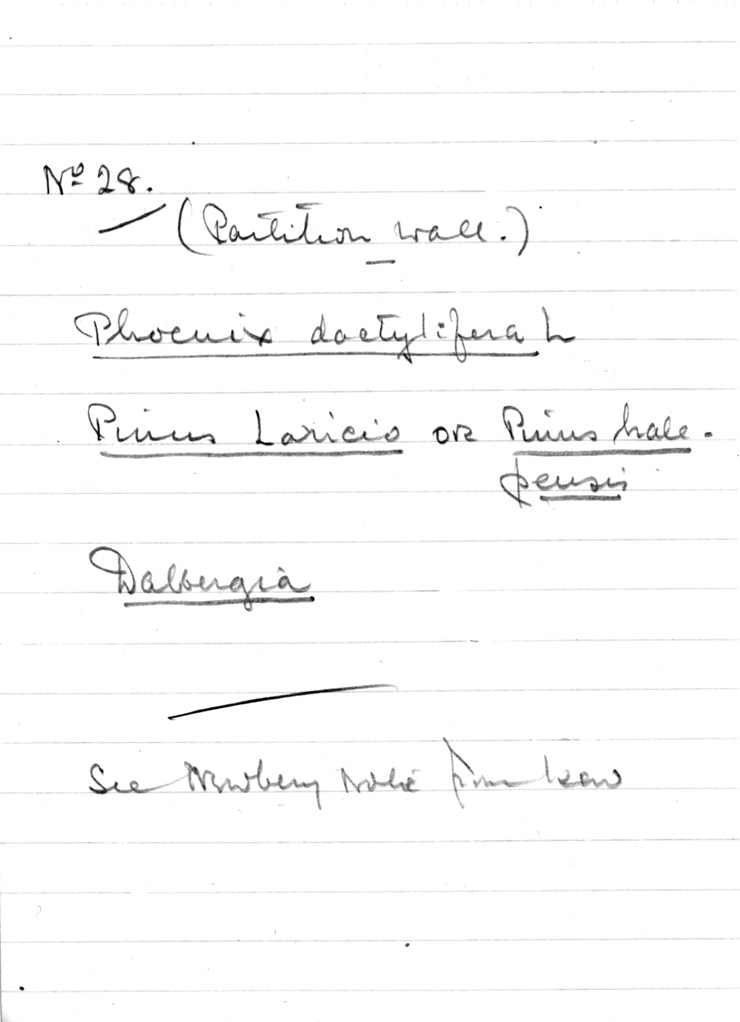 Nº 28.
(Partition wall.)
Phoenix dactylifera L
Pinus Laricio or Pinus hale-
pensis
Dalbergia
See Newberry Note from Kew